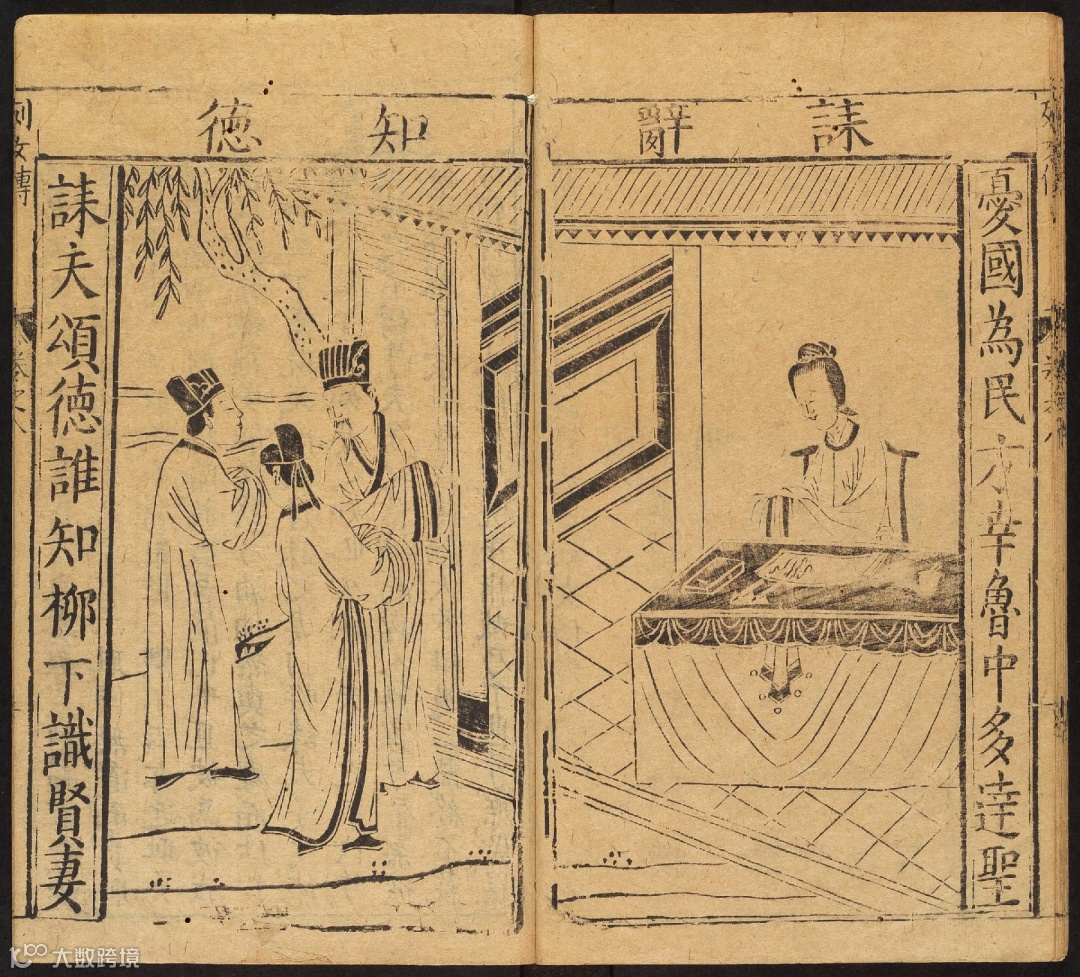 誄辭
憂國為民才幸魯中多逹聖
知徳
誄夫頌徳誰知柳下識賢妻
列女傳
大数跨境